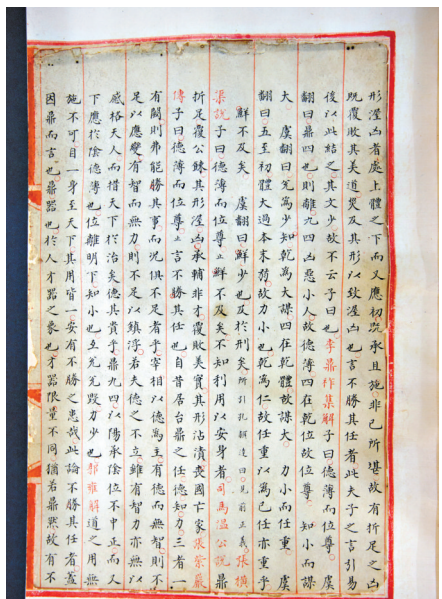 形渥凶者處上體之下而又應初既承且施非己所堪故有折足之凶
既覆敗其美道災及其形以致渥凶也言不勝其任者此夫子之言引易
後以此結之其文少故不云子曰也李鼎祚集解子曰德薄而位尊虞
翻曰鼎四也則離九四凶惡小人故德薄四在乾位故位尊 知小而謀
大 虞翻曰兌為少知乾為大謀四在乾體故謀大 力小而任重 虞
翻曰五至初體大過本末弱故力小也乾為仁故任重以為己任不亦重乎
鮮不及矣 虞翻曰鮮少也及於刑矣
集說子曰德薄而位尊至鮮不及矣不知利用以安身者司馬溫公說鼎
折足覆公餗其形渥凶承輔非才覆敗美實其形沾漬喪國亡家張紫巖
傳子曰德薄而位尊至言不勝其任也自昔居台鼎之任德知力三者一
有闕則弗能勝其事而況俱不足者乎宰相以德為主有德而無智則不
足以應變有智而無力則不足以鎮浮若夫德之不立雖有智力亦無以
感格天人而措天下於治矣德其貴乎鼎九四以陽承陰位不中正而又
下應於陰德薄也位離明下知小也互兌兌毀力少也郭雍解道之用無
施不可自一身至天下其用皆一安有不勝之患哉此論不勝其任者蓋
因鼎而言也鼎器也於人才器之象也才器限量不同猶若鼎然故有不